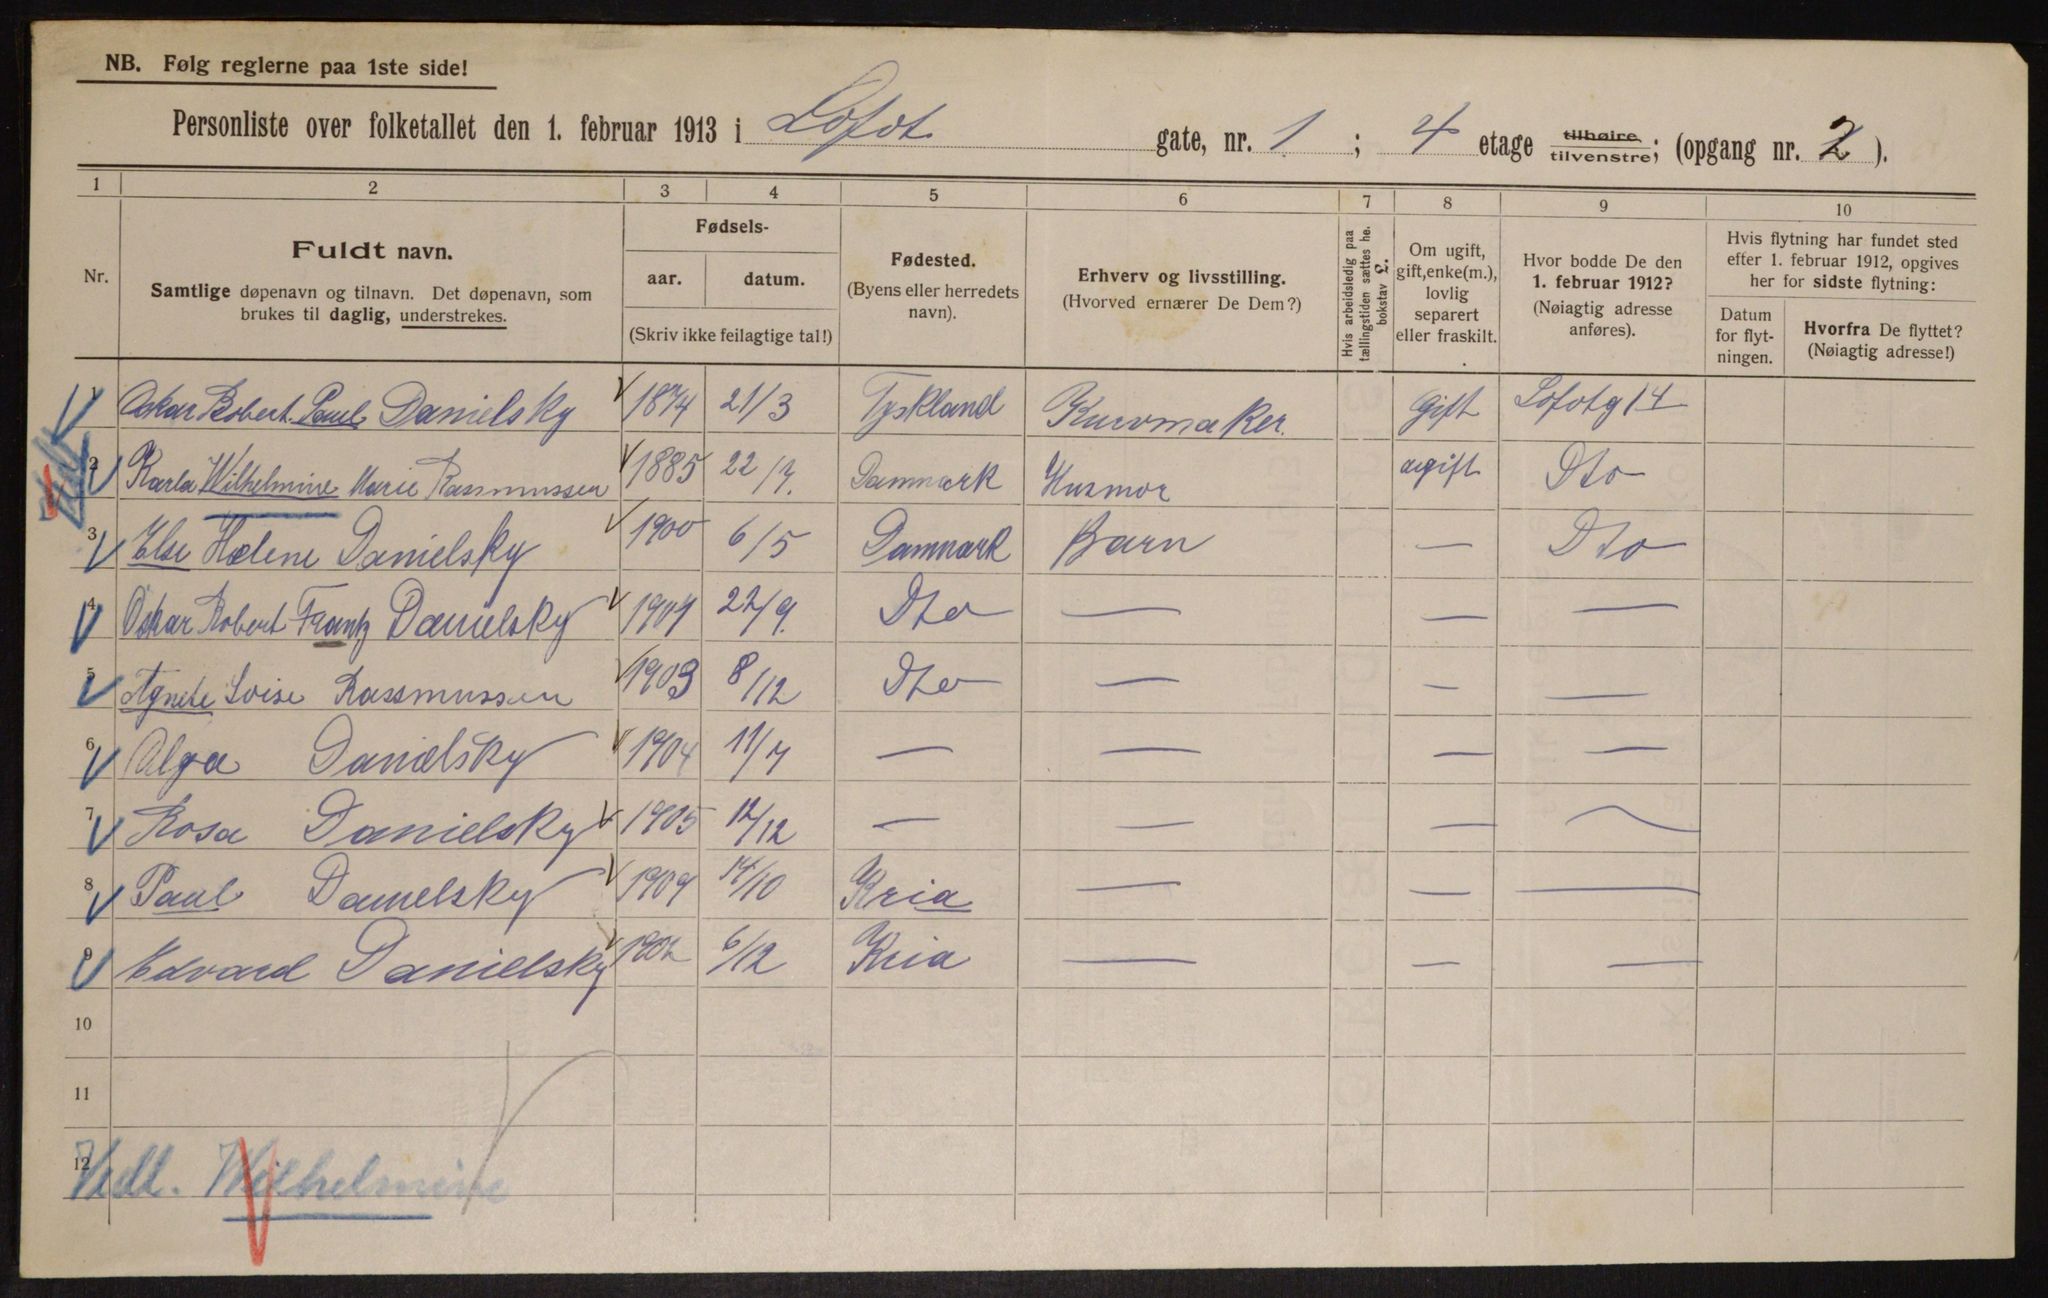 NB. Følg reglerne paa 1ste side!
Personliste over folketallet den 1. februar 1913 i Lofot gate, nr. 1 ; 4 etage tilhøire tilvenstre; (opgang nr. 2 ).
1 2 3 4 5 6 7 8 9 10
Nr.
Fuldt navn.
Samtlige døpenavn og tilnavn. Det døpenavn, som
brukes til daglig, understrekes.
Fødsels-
aar. datum.
(Skriv ikke feilagtige tal!)
Fødested.
(Byens eller herredets
navn).
Erhverv og livsstilling.
(Hvorved ernærer De Dem?)
Hvis arbeidsledig paa
tællingstiden sættes he.
bokstav £.
Om ugift,
gift, enke(m.),
lovlig
separert
eller fraskilt.
Hvor bodde De den
1. februar 1912?
(Nøiagtig adresse
anføres).
Hvis flytning har fundet sted
efter 1. februar 1912, opgives
her for sidste flytning:
Datum
for flyt-
ningen.
Hvorfra De flyttet?
(Nøiagtig adresse!)
1 Oskar Robert Paul Danielsky 1874 21/3 Tyskland Kurvmaker. Gift Lofotg 14
2 Karla Wilhelmine Marie Rasmussen 1885 22/7. Danmark Husmor ugift Dto
3 Else Helene Danielsky 1900 6/5 Danmark Barn — Dto
4 Oskar Robert Frantz Danielsky 1901 22/9. Dto — — —
5 Agnete Loise Rassmussen 1903 8/12 Dto — — —
6 Olga Danielsky 1904 11/7 — — — —
7 Rosa Danielsky 1905 12/12 — — — —
8 Paul Danielsky 1909 14/10 Kria — — —
9 Edvard Danielsky 6/12 Kria — — —
10
11
12
Vedl. Wilhelmine